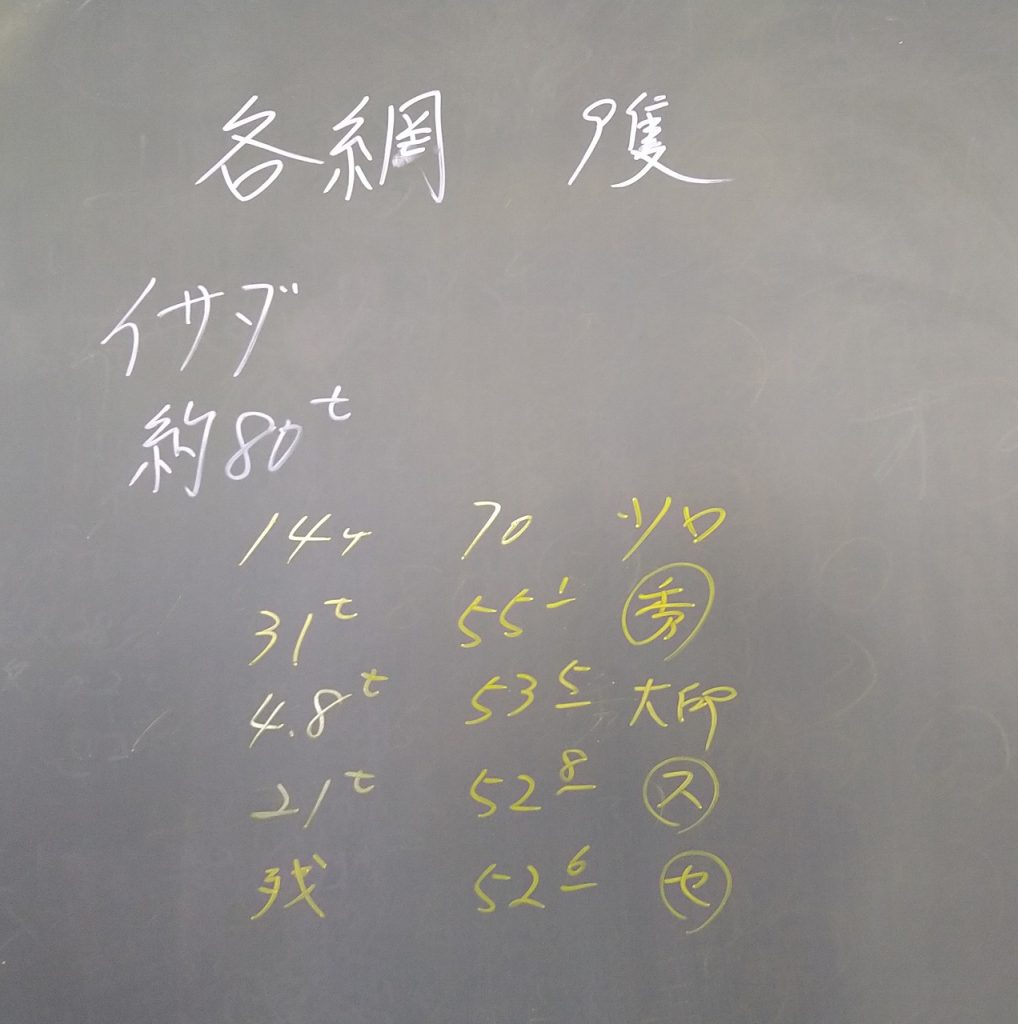 各網 7隻
イサダ
約80t
14ケ 70 ツロ
31t 55 1 秀
4.8t 53 5 大印
21t 52 8 ス
残 52 6 セ